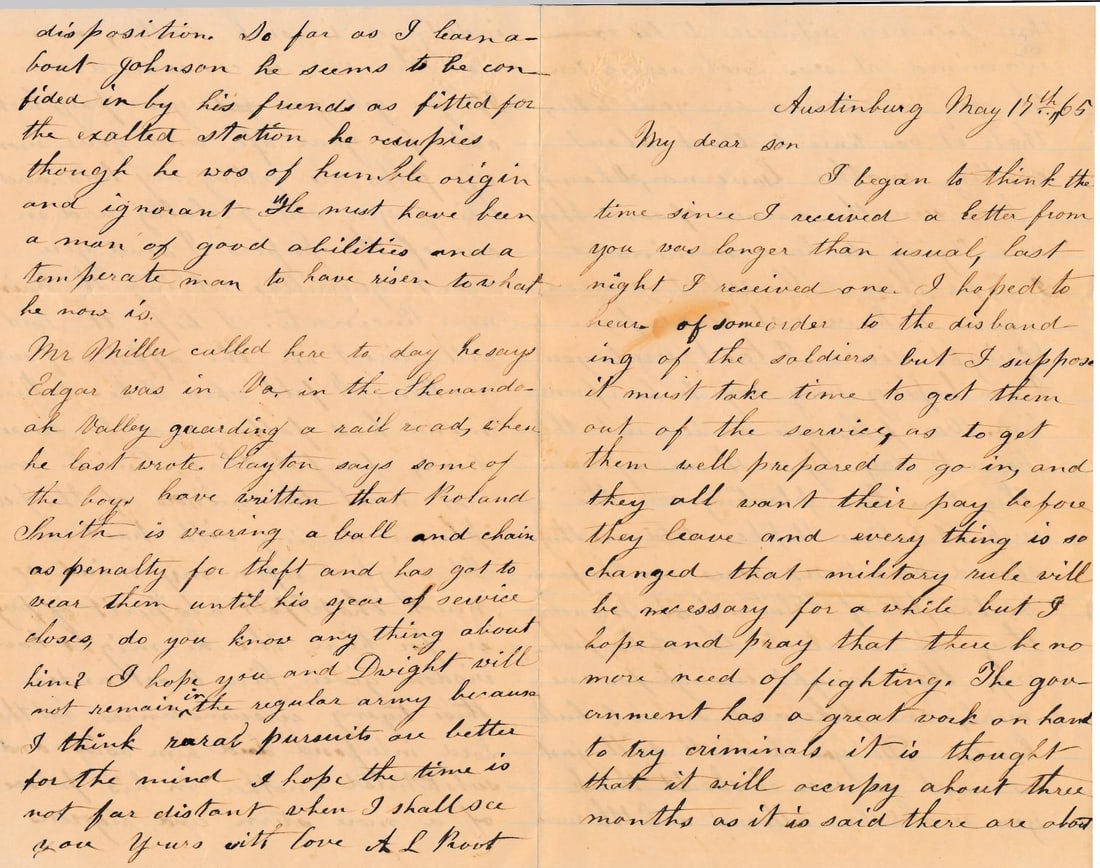 Austinburg May 17th, 65
My dear son
I began to think the
time since I received a letter from
you was longer than usual, last
night I received one. I hoped to
hear of some order to the disband-
ing of the soldiers but I suppose
it must take time to get them
out of the service, as to get
them well prepared to go in, and
they all want their pay before
they leave and every thing is so
changed that military rule will
be necessary for a while but I
hope and pray that there be no
more need of fighting. The gov-
ernment has a great work on hand
to try criminals it is thought
that it will occupy about three
months as it is said there are about
disposition. So far as I learn a-
bout Johnson he seems to be con-
fided in by his friends as fitted for
the exalted station he occupies
though he was of humble origin
and ignorant He must have been
a man of good abilities and a
temperate man to have risen to what
he now is.
Mr Miller called here to day he says
Edgar was in Va, in the Shenando-
ah Valley guarding a rail road, when
he last wrote. Clayton says some of
the boys have written that Roland
Smith is wearing a ball and chain
as penalty for theft and has got to
wear them until his year of service
closes, do you know any thing about
him? I hope you and Dwight will
not remain in the regular army because
I think rural pursuits are better
for the mind I hope the time is
not far distant when I shall see
you Yours with love A L Root